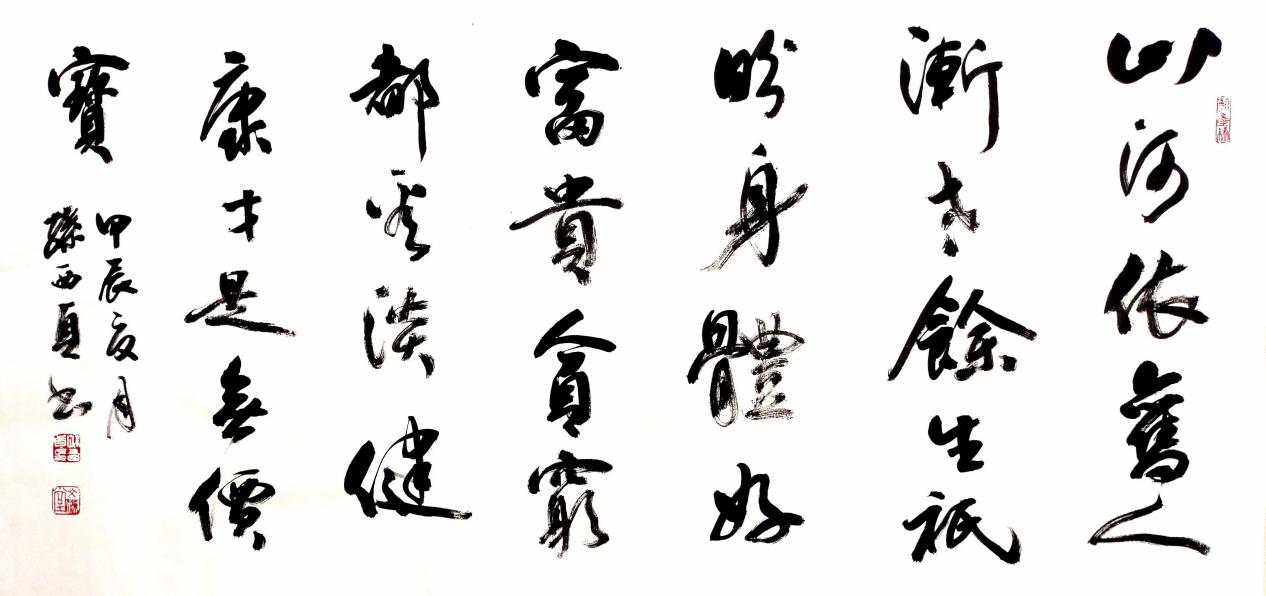 山河依舊人
漸老餘生祇
盼身體好
富貴貧窮
都雲淡健
康才是無價
寶
甲辰夏月
孫西貞書